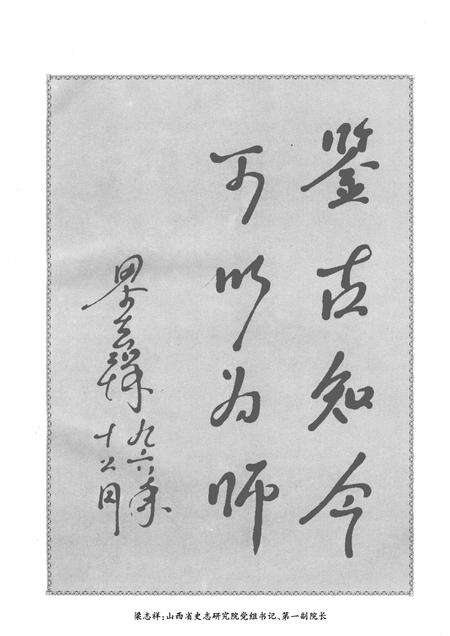 鉴古知今
可以为师
梁志祥 九六年
十二月
梁志祥:山西省史志研究院党组书记、第一副院长